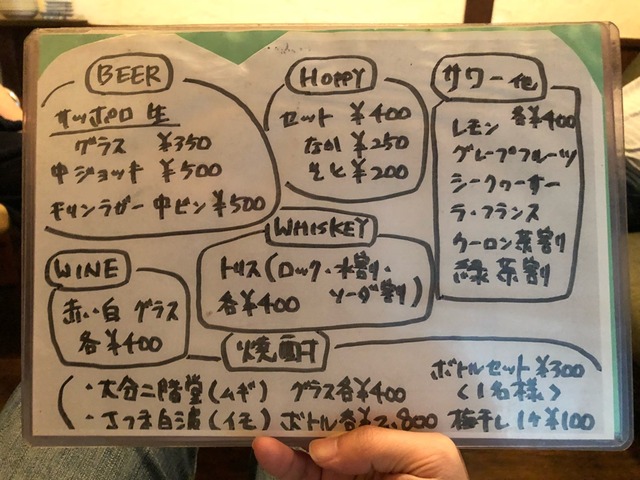 BEER
サッポロ 生
グラス ¥350
中ジョッキ ¥500
キリンラガー 中ビン ¥500
HOPPY
セット ¥400
なか ¥250
そと ¥200
サワー他
レモン 各¥400
グレープフルーツ
シークヮーサー
ラ・フランス
ウーロン茶割
緑茶割
WHISKEY
トリス(ロック・水割・
各¥400 ソーダ割)
WINE
赤・白 グラス
各¥400
焼酎
・大分二階堂(ムギ) グラス各¥400
・さつま白波(イモ) ボトル各¥2,800
ボトルセット ¥300
〈1名様〉
梅干し 1ケ ¥100